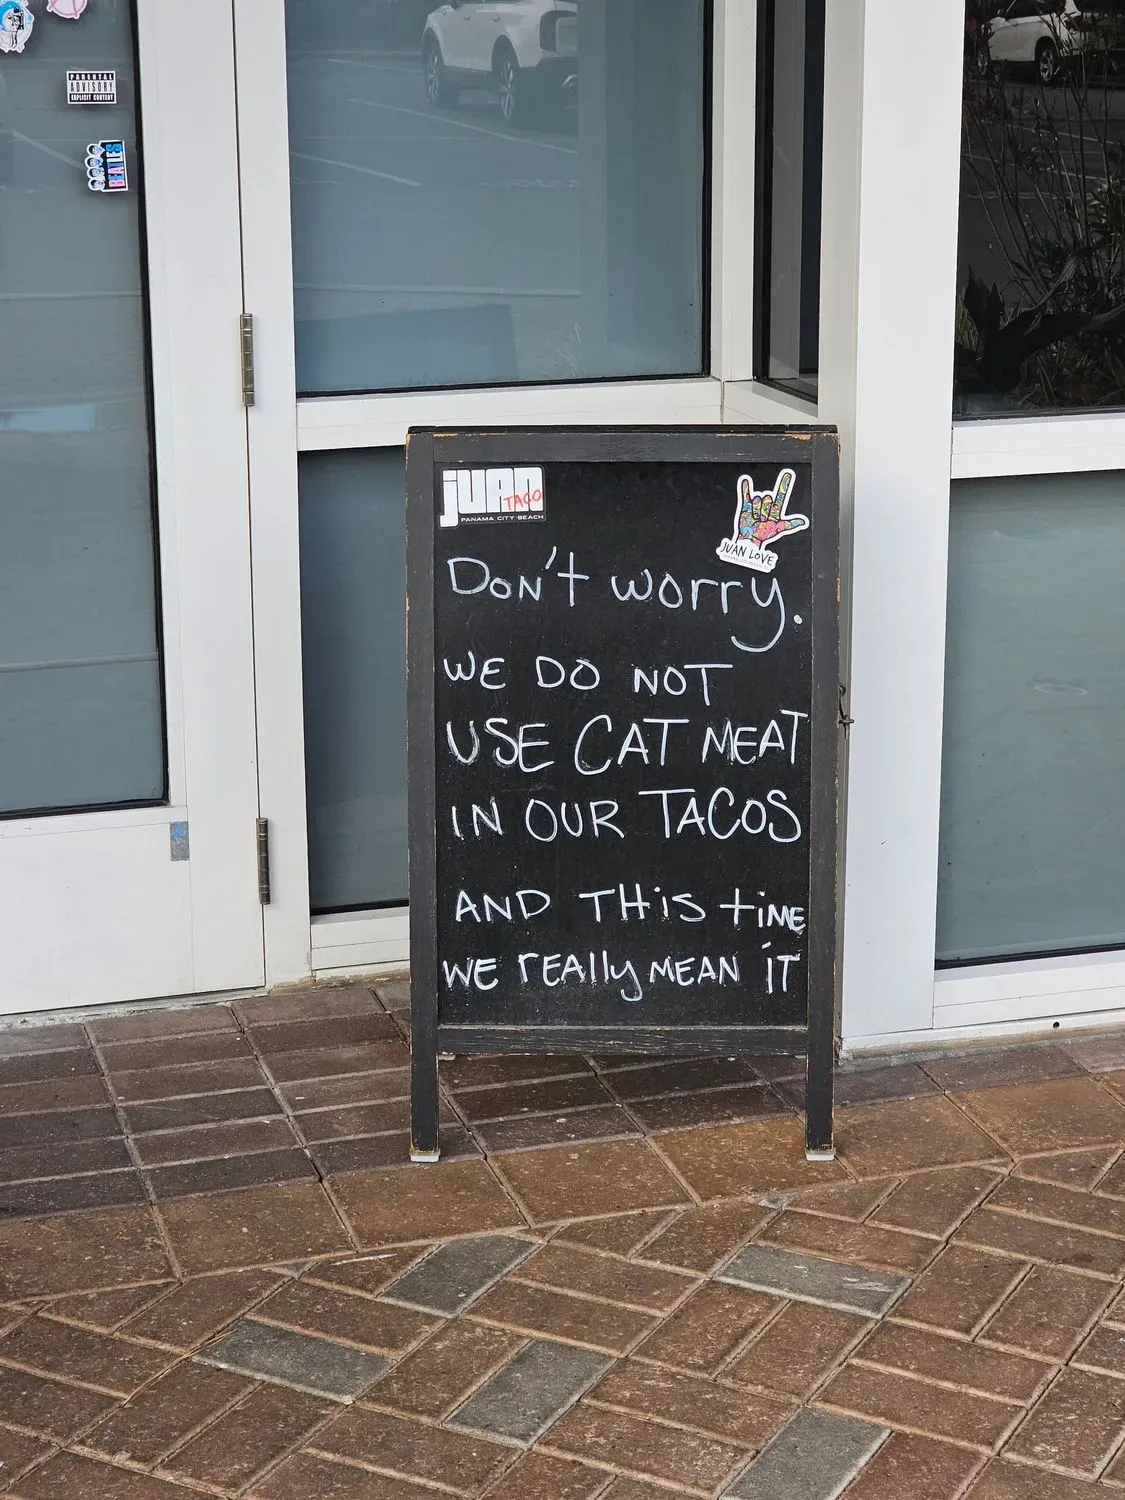 PARENTAL
ADVISORY
EXPLICIT CONTENT
BEATLES
juan
TACO
PANAMA CITY BEACH
JUAN LOVE
Don't worry.
WE DO NOT
USE CAT MEAT
IN OUR TACOS
AND THiS tiME
WE rEAlly MEAN iT